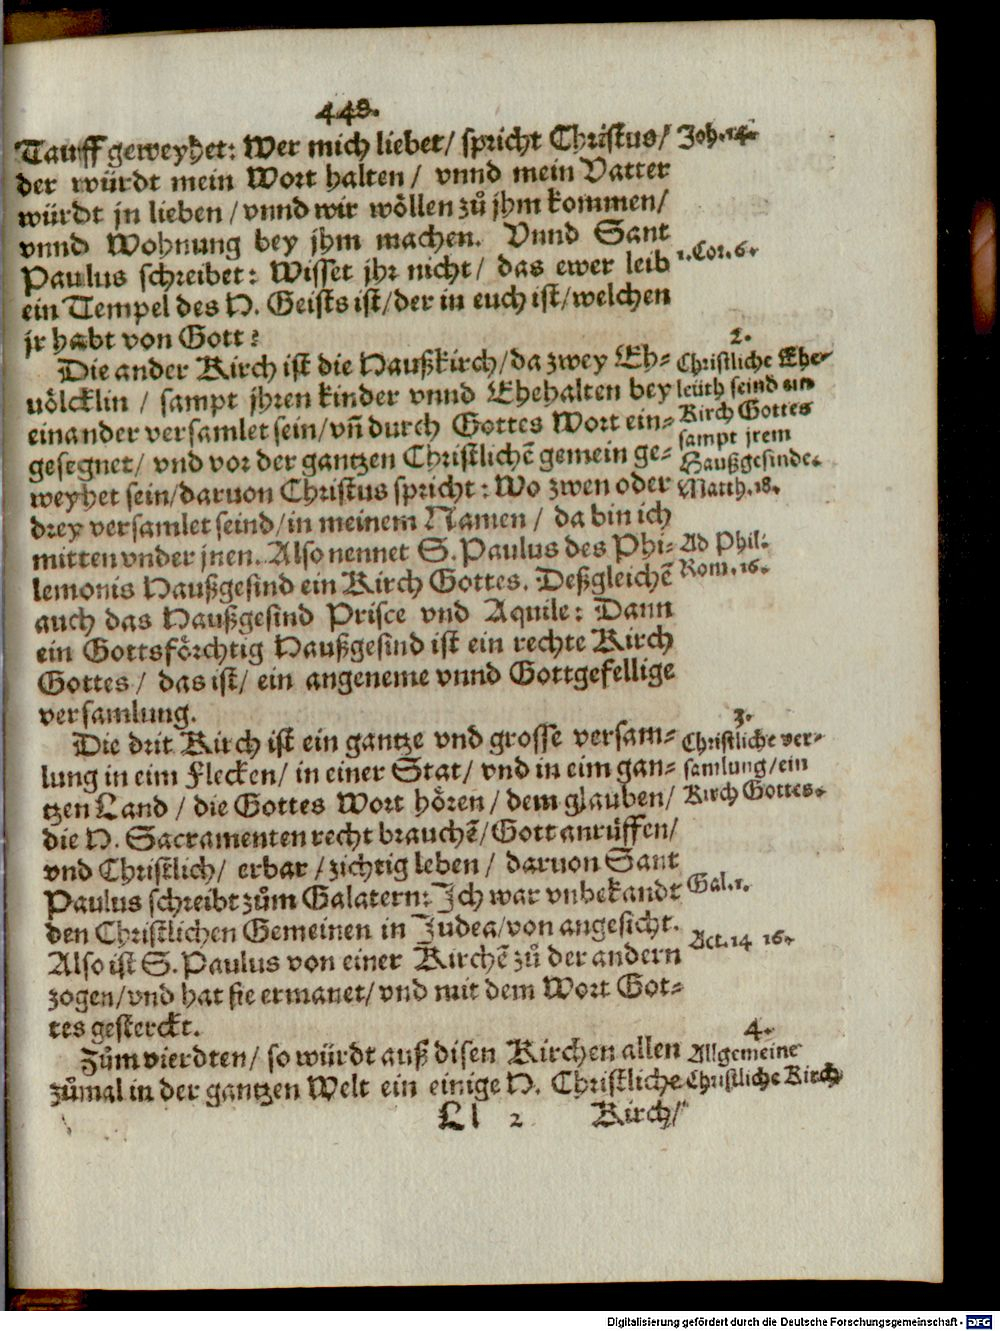 443.
Tauff geweyhet: Wer mich liebet/ spricht Christus/
Joh.14.
der würdt mein Wort halten/ vnnd mein Vatter
würdt jn lieben/vnnd wir wöllen zů jhm kommen/
vnnd Wohnung bey jhm machen. Vnnd Sant
Paulus schreibet: Wisset jhr nicht/ das ewer leib
1.Cor.6.
ein Tempel des H. Geists ist/der in euch ist/welchen
jr habt von Gott?
Die ander Kirch ist die Haußkirch/da zwey Eh-
völcklin / sampt jhren kinder vnnd Ehehalten bey
einander versamlet sein/vñ durch Gottes Wort ein-
gesegnet/ vnd vor der gantzen Christlichẽ gemein ge-
weyhet sein/daruon Christus spricht: Wo zwen oder
drey versamlet seind/in meinem Namen/ da bin ich
mitten vnder jnen. Also nennet S. Paulus des Phi-
lemonis Haußgesind ein Kirch Gottes. Deßgleichẽ
auch das Haußgesind Prisce vnd Aquile: Dann
ein Gottsförchtig Haußgesind ist ein rechte Kirch
Gottes/ das ist/ ein angeneme vnnd Gottgefellige
versamlung.
2.
Christliche Ehe-
leüth seind ein
Kirch Gottes
sampt jrem
Haußgesinde.
Matth.18.
Ad Phil:
Rom.16.
Die drit Kirch ist ein gantze vnd grosse versam-
lung in eim Flecken/ in einer Stat/ vnd in eim gan-
tzen Land / die Gottes Wort hören/ dem glauben/
die H. Sacramenten recht brauchẽ/Gott anrüffen/
vnd Christlich/ erbar/zichtig leben/ daruon Sant
Paulus schreibt zům Galatern: Ich war vnbekandt
den Christlichen Gemeinen in Judea/von angesicht.
Also ist S. Paulus von einer Kirchẽ zů der andern
zogen/vnd hat sie ermanet/vnd mit dem Wort Got-
tes gesterckt.
3.
Christliche ver-
samlung/ein
Kirch Gottes.
Gal.1.
Act.14 16.
Zům vierdten/ so würdt auß disen Kirchen allen
zůmal in der gantzen Welt ein einige H. Christliche
4.
Allgemeine
Christliche Kirch
Ll 2 Kirch/
Digitalisierung gefördert durch die Deutsche Forschungsgemeinschaft - DFG